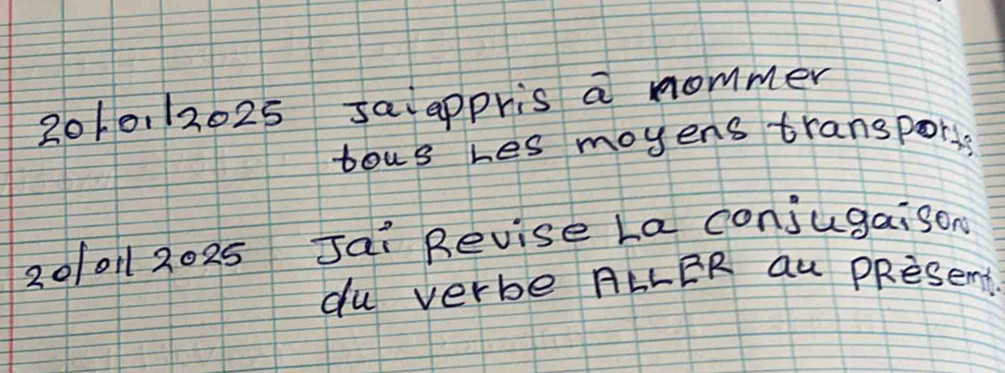 20/01/2025 Jai appris à nommer
tous Les moyens transports
20/01/2025 Jai Revise La conjugaison
du verbe ALLER au PRèsent.